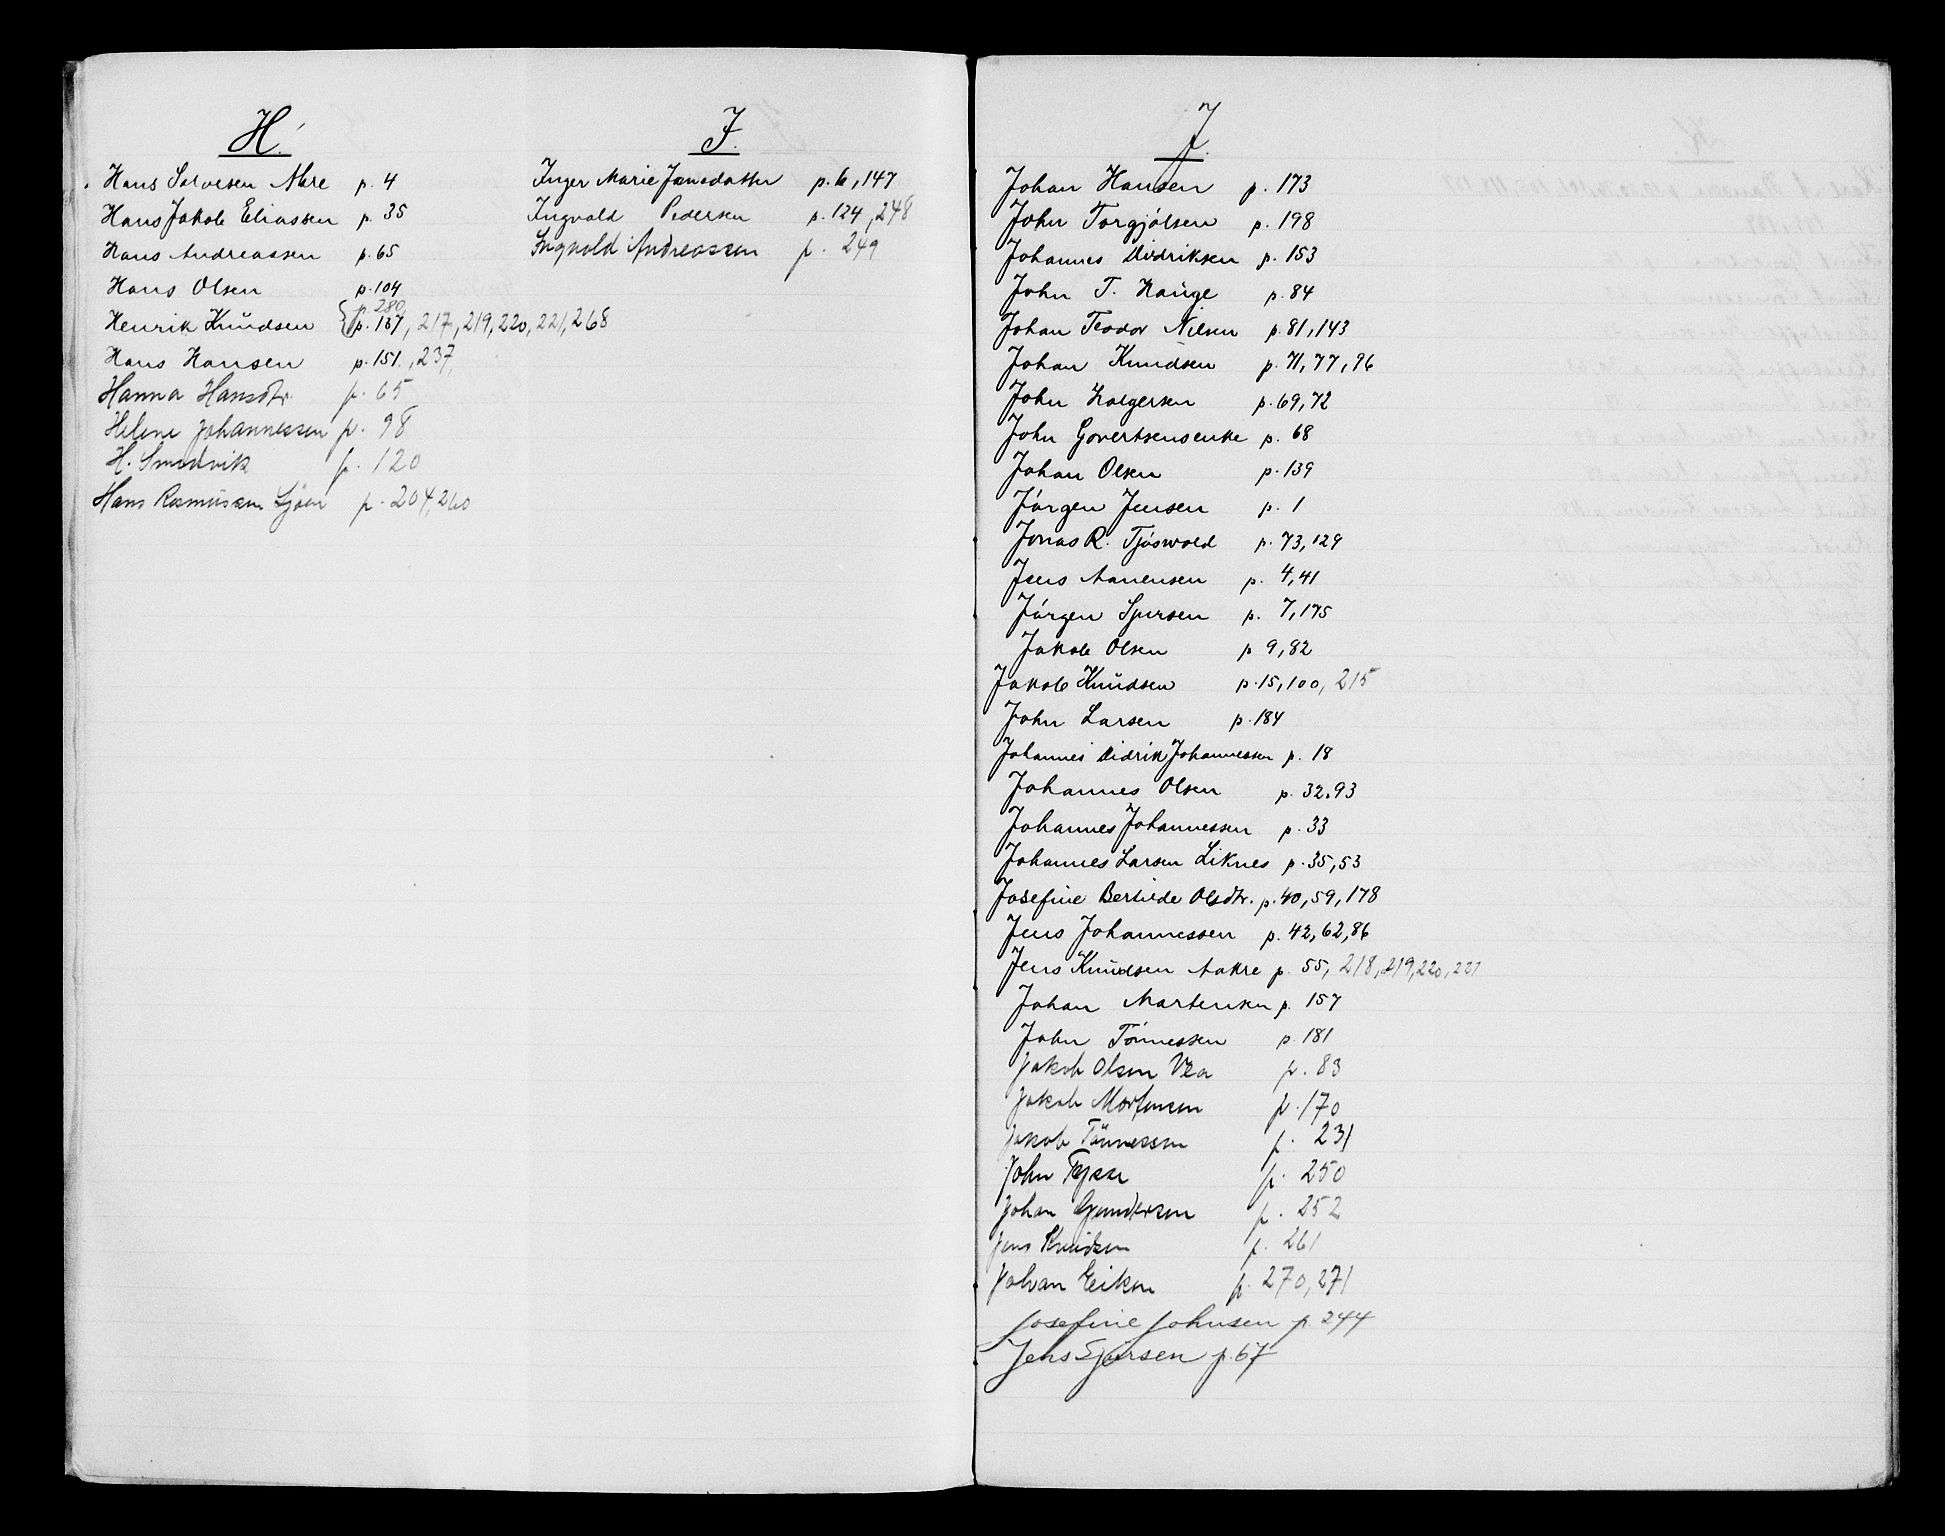 H.
Hans Salvesen Aare p. 4
Hans Jakob Eliassen p. 35
Hans Andreassen p. 65
Hans Olsen p. 104
p. 280
Henrik Knudsen p. 187, 217, 219, 220, 221, 268
Hans Hansen p. 151, 237
Hanna Hansdtr. p. 65
Helene Johannessen p. 98
H. Smedvik p. 120
Hans Rasmussen Sjöen p. 204, 260
I.
Inger Marie Jensdatter p. 6, 147
Ingvald Pedersen p. 124, 248
Ingvald Andreassen p. 249
J.
Johan Hansen p. 173
John Torgjølsen p. 198
Johannes Didriksen p. 153
John T. Hauge p. 84
Johan Teodor Nilsen p. 81, 143
Johan Knudsen p. 71, 77, 96
John Holgersen p. 69, 72
John Govertsen p. 68
Johan Olsen p. 139
Jørgen Jensen p. 1
Jonas R. Tjøswold p. 73, 129
Jens Aanensen p. 4, 41
Jørgen Sjursen p. 7, 175
Jakob Olsen p 9, 82
Jakob Knudsen p. 15, 100, 215
John Larsen p. 184
Johannes Didrik Johannessen p. 18
Johannes Olsen p. 32. 93
Johannes Johannessen p. 33
Johannes Larsen Liknes p. 35, 53
Josefine Bertilde Olsdtr. p. 40, 59, 178
Jens Johannessen p. 42, 62, 86
Jens Knudsen Aakre p. 55, 218, 219, 220, 221
Johan Martensen p. 157
John Tønnessen p. 181
Jakob Olsen Vea p. 83
Jakob Mortensen p. 170
Jakob Tönnessen p. 231
John p. 250
Johan Gundersen p. 252
Jens Knudsen p. 261
Johan Eiksen p. 270, 271
Josefine Johnsen p. 244
Jens Sjursen p. 67